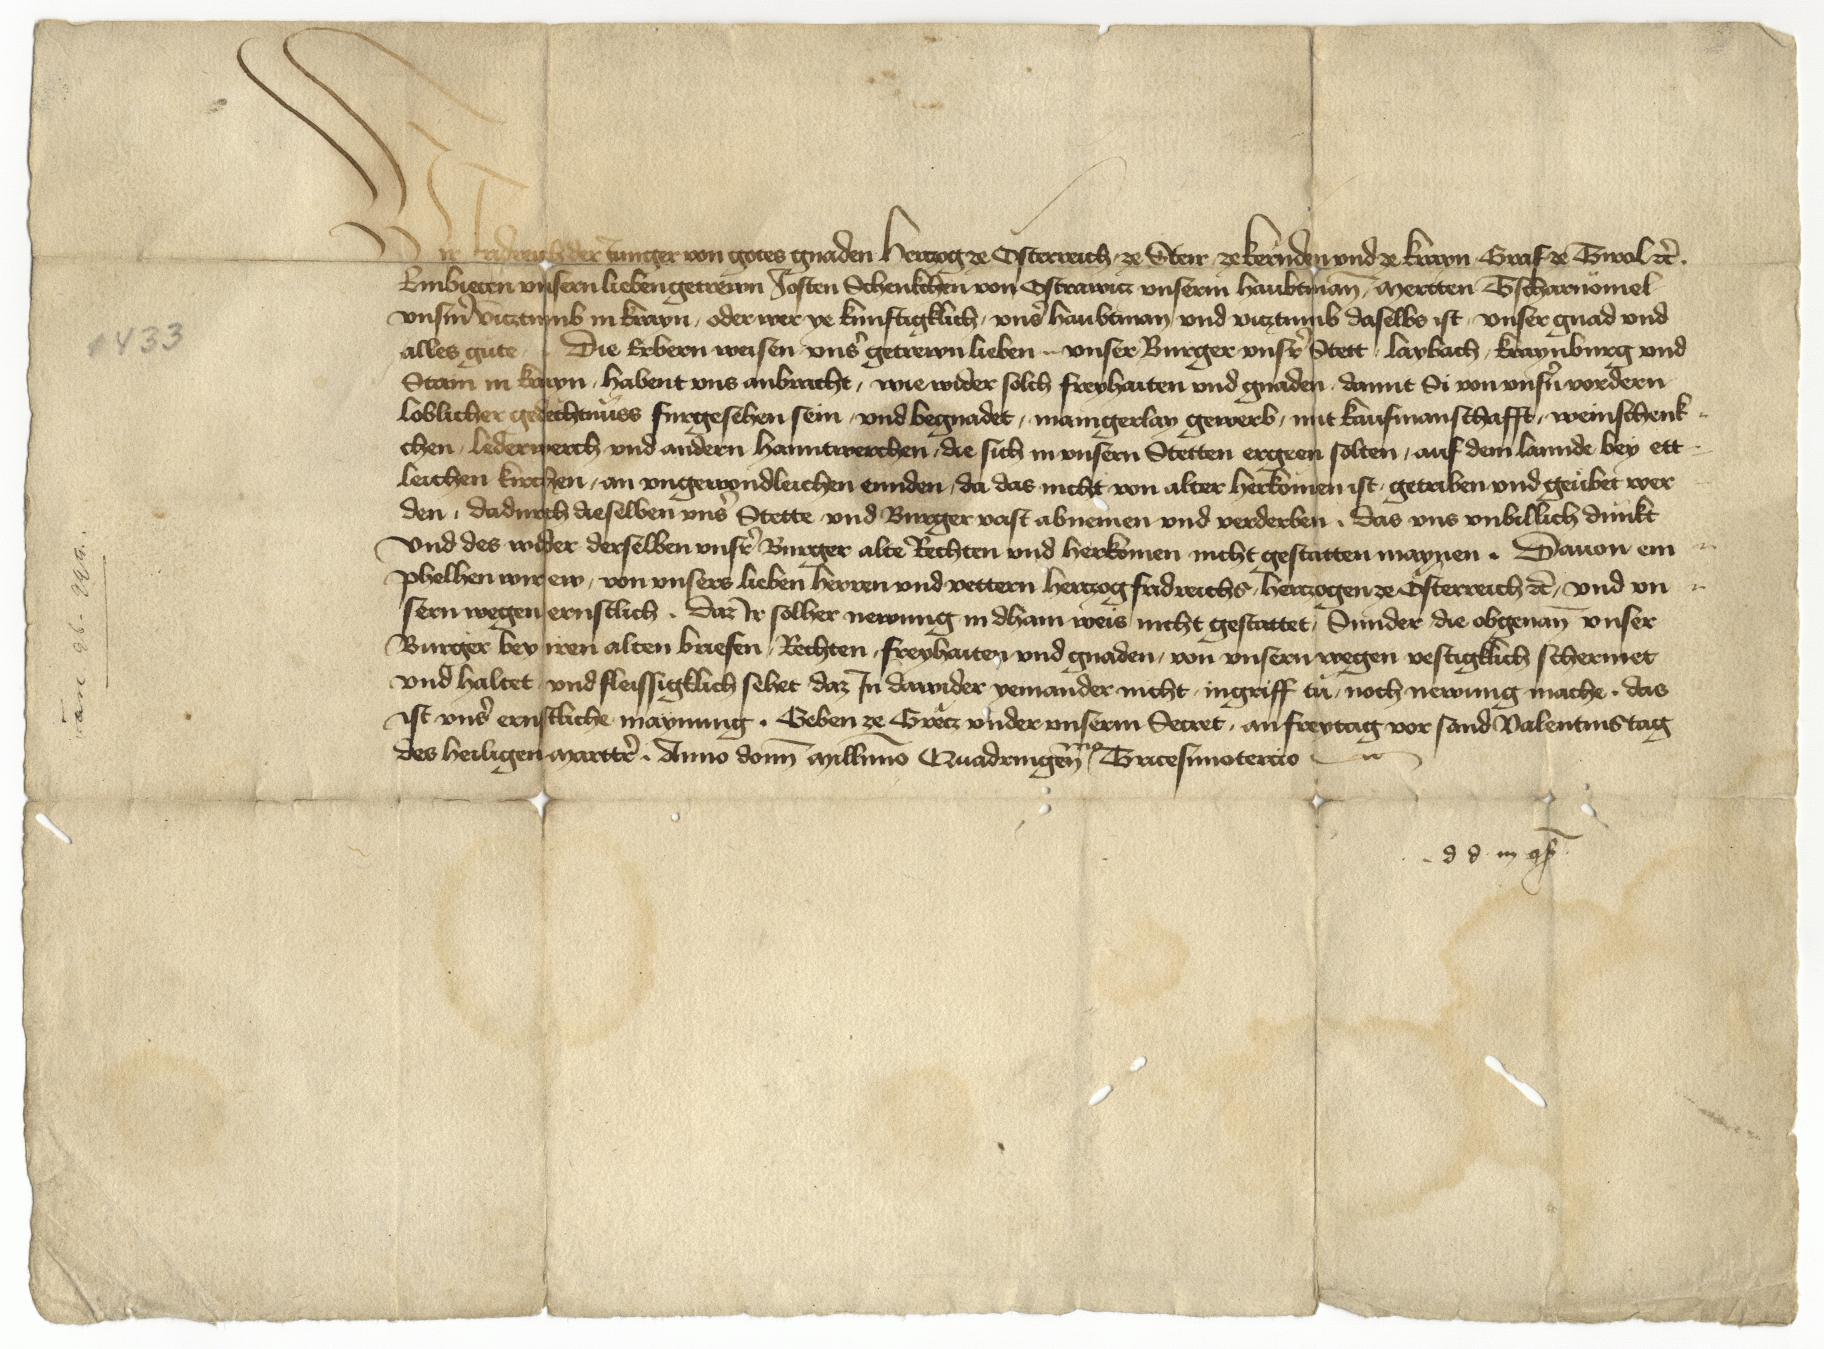 Wir Fridreich der Junger von gotes gnaden Hertzog ze Osterreich, ze Steir, ze Kernden und ze Krayn, Graf ze Tirol etc̄.
Embieten unsern lieben getrewn Josten Schenkchen von Ostrawitz unserm haubtman̄, Mertten Tscharnömel
unserm vitztumb in Krayn, oder wer ye kunftigklich, uns̓ haubtman und vitztumb daselbs ist, unser gnad und
alles gute. Die Erbern weisen uns̓ getrewn lieben .. unser Burger unsr̓ Stett, Laybach, Kraynburg und
Stain in Krayn, habent uns anbracht, wie wider solh freyhaiten und gnaden, damit Si von unsn̓ vordern
loblicher gedechtnüss fürgesehen sein, und begnadet, manigerlay gewerb, mit kaufmanschafft, weinschenk-
chen, lederwerch und andern hanntwerchen, die sich in unsern Stetten ergeen solten, auf dem lannde bey ett-
leichen kirchen, an ungewondleichen ennden, da das nicht von alter herkomen ist, getriben und geübet wer
den, dadurch dieselben uns̓ Stette und Burger vast abnemen und verderben. Das uns unbillich dünkt
Und des wider derselben unsr̓ Burger alte Rechten und herkomen nicht gestatten maynen. Dauon em
phelhen wir ew, von unsers lieben herren und vettern hertzog Fridreichs, hertzogen ze Österreich etc̄, und un
sern wegen ernstlich. Daz Ir solher newung in dhain weis nicht gestattet, Sunder die obgenan̄ unser
Burger bey iren alten briefen, Rechten, freyhaiten und gnaden, von unsern wegen vestigklich schermet
und haltet und fleissigklich sehet daz In dawider yemander nicht ingriff tü, noch newung mache. Das
ist uns̓ ernstliche maynung. Geben ze Gretz under unserm Secret, an freytag vor sand Valentins tag
des heiligen Marttr̓. Anno domī Millīmo Quadringēn̄mo Tricesimotercio
d d in
1433